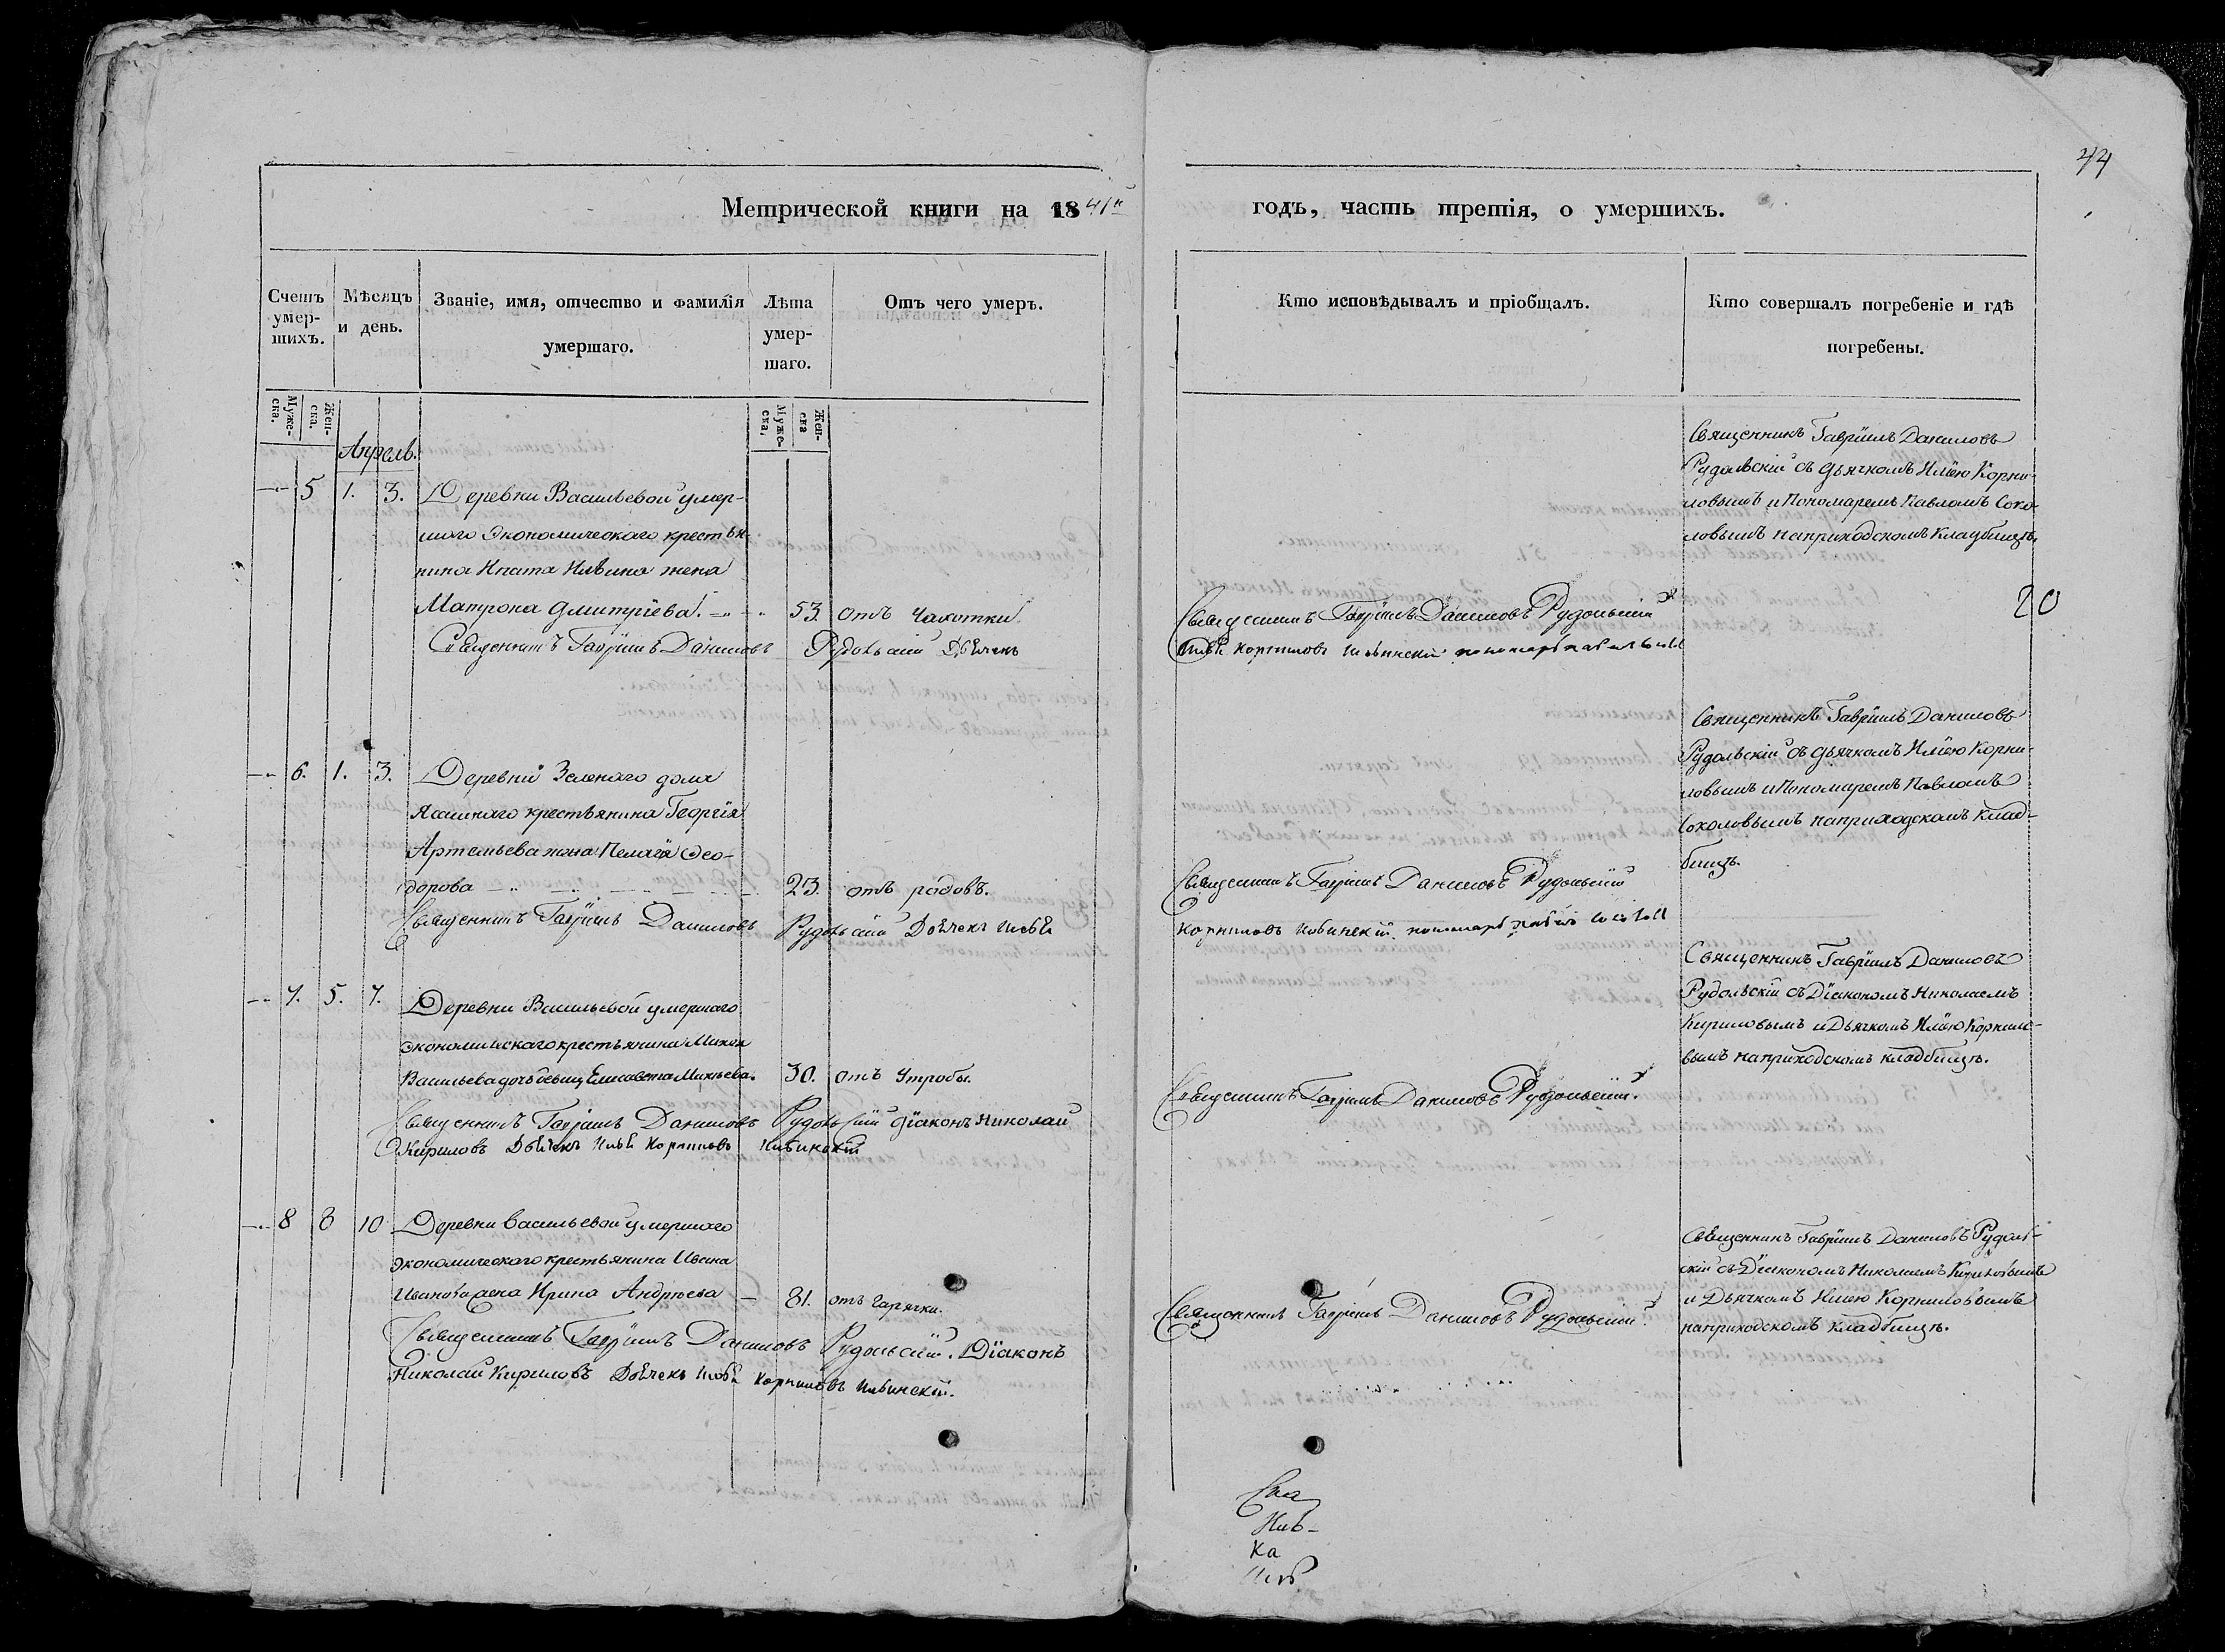 44
Метрической книги на 1841й годъ, часть третія, о умершихъ.
Счетъ умер-шихъ.
Мѣсяцъ и день.
Званіе, имя, отчество и фамилія умершаго.
Лѣта умер-шаго.
Отъ чего умеръ.
Кто исповѣдывалъ и пріобщалъ.
Кто совершалъ погребеніе и гдѣ погребены.
Муже-ска.
Жен-ска.
Муже-ска,
Жен-ска
Апрель.
5 1. 3. Деревни Васильевой умер-
шаго Экономическаго крестья-
нина Ипата Ильина жена
Матрона Дмитріева. 53. отъ чахотки.
Священникъ Гавріилъ Даниловъ Рудольскій Дьячекъ
Священникъ Гавріилъ Даниловъ Рудольскій
Илья Корниловъ Ильинскій пономарь Павелъ
Священникъ Гавріилъ Даниловъ
Рудольскій съ дьячкомъ Ильею Корни-
ловымъ и Пономаремъ Павломъ Соко-
ловымъ наприходскомъ кладбищѣ.
20
6. 1. 3. Деревни Зеленаго дола
Ясашнаго крестьянина Георгія
Артемьева жена Пелагія Ѳео-
дорова 23. отъ родовъ.
Священникъ Гавріилъ Даниловъ Рудольскій Дьячекъ Илья
Священникъ Гавріилъ Даниловъ Рудольскій
Корниловъ Ильинскій. пономарь Павелъ
Священникъ Гавріилъ Даниловъ
Рудольскій съ дьячкомъ Ильею Корни-
ловымъ и Пономаремъ Павломъ
Соколовымъ наприходскомъ клад-
бищѣ.
7. 5. 7. Деревни Васильевой умершаго
экономическаго крестьянина Михея
Васильева дочь Елисавета Михеева. 30. отъ Утробы.
Священникъ Гавріилъ Даниловъ Рудольскій Діаконъ Николай
Кириловъ Дьячекъ Илья Корниловъ Ильинскій
Священникъ Гавріилъ Даниловъ Рудольскій.
Священникъ Гавріилъ Даниловъ
Рудольскій съ Діакономъ Николаемъ
Кириловымъ и Дьячкомъ Ильею Корнило-
вымъ наприходскомъ кладбищѣ.
8 8 10 Деревни Васильевой умершаго
экономическаго крестьянина Ивана
Иванова жена Ирина Андреева 81. отъ горячки.
Священникъ Гавріилъ Даниловъ Рудольскій. Діаконъ
Николай Кириловъ Дьячекъ Илья Корниловъ Ильинскій.
Священникъ Гавріилъ Даниловъ Рудольскій.
Священникъ Гавріилъ Даниловъ Рудоль-
скій съ Діакономъ Николаемъ Кириловымъ
и Дьячкомъ Ильею Корниловымъ
наприходскомъ кладбищѣ.
Ка